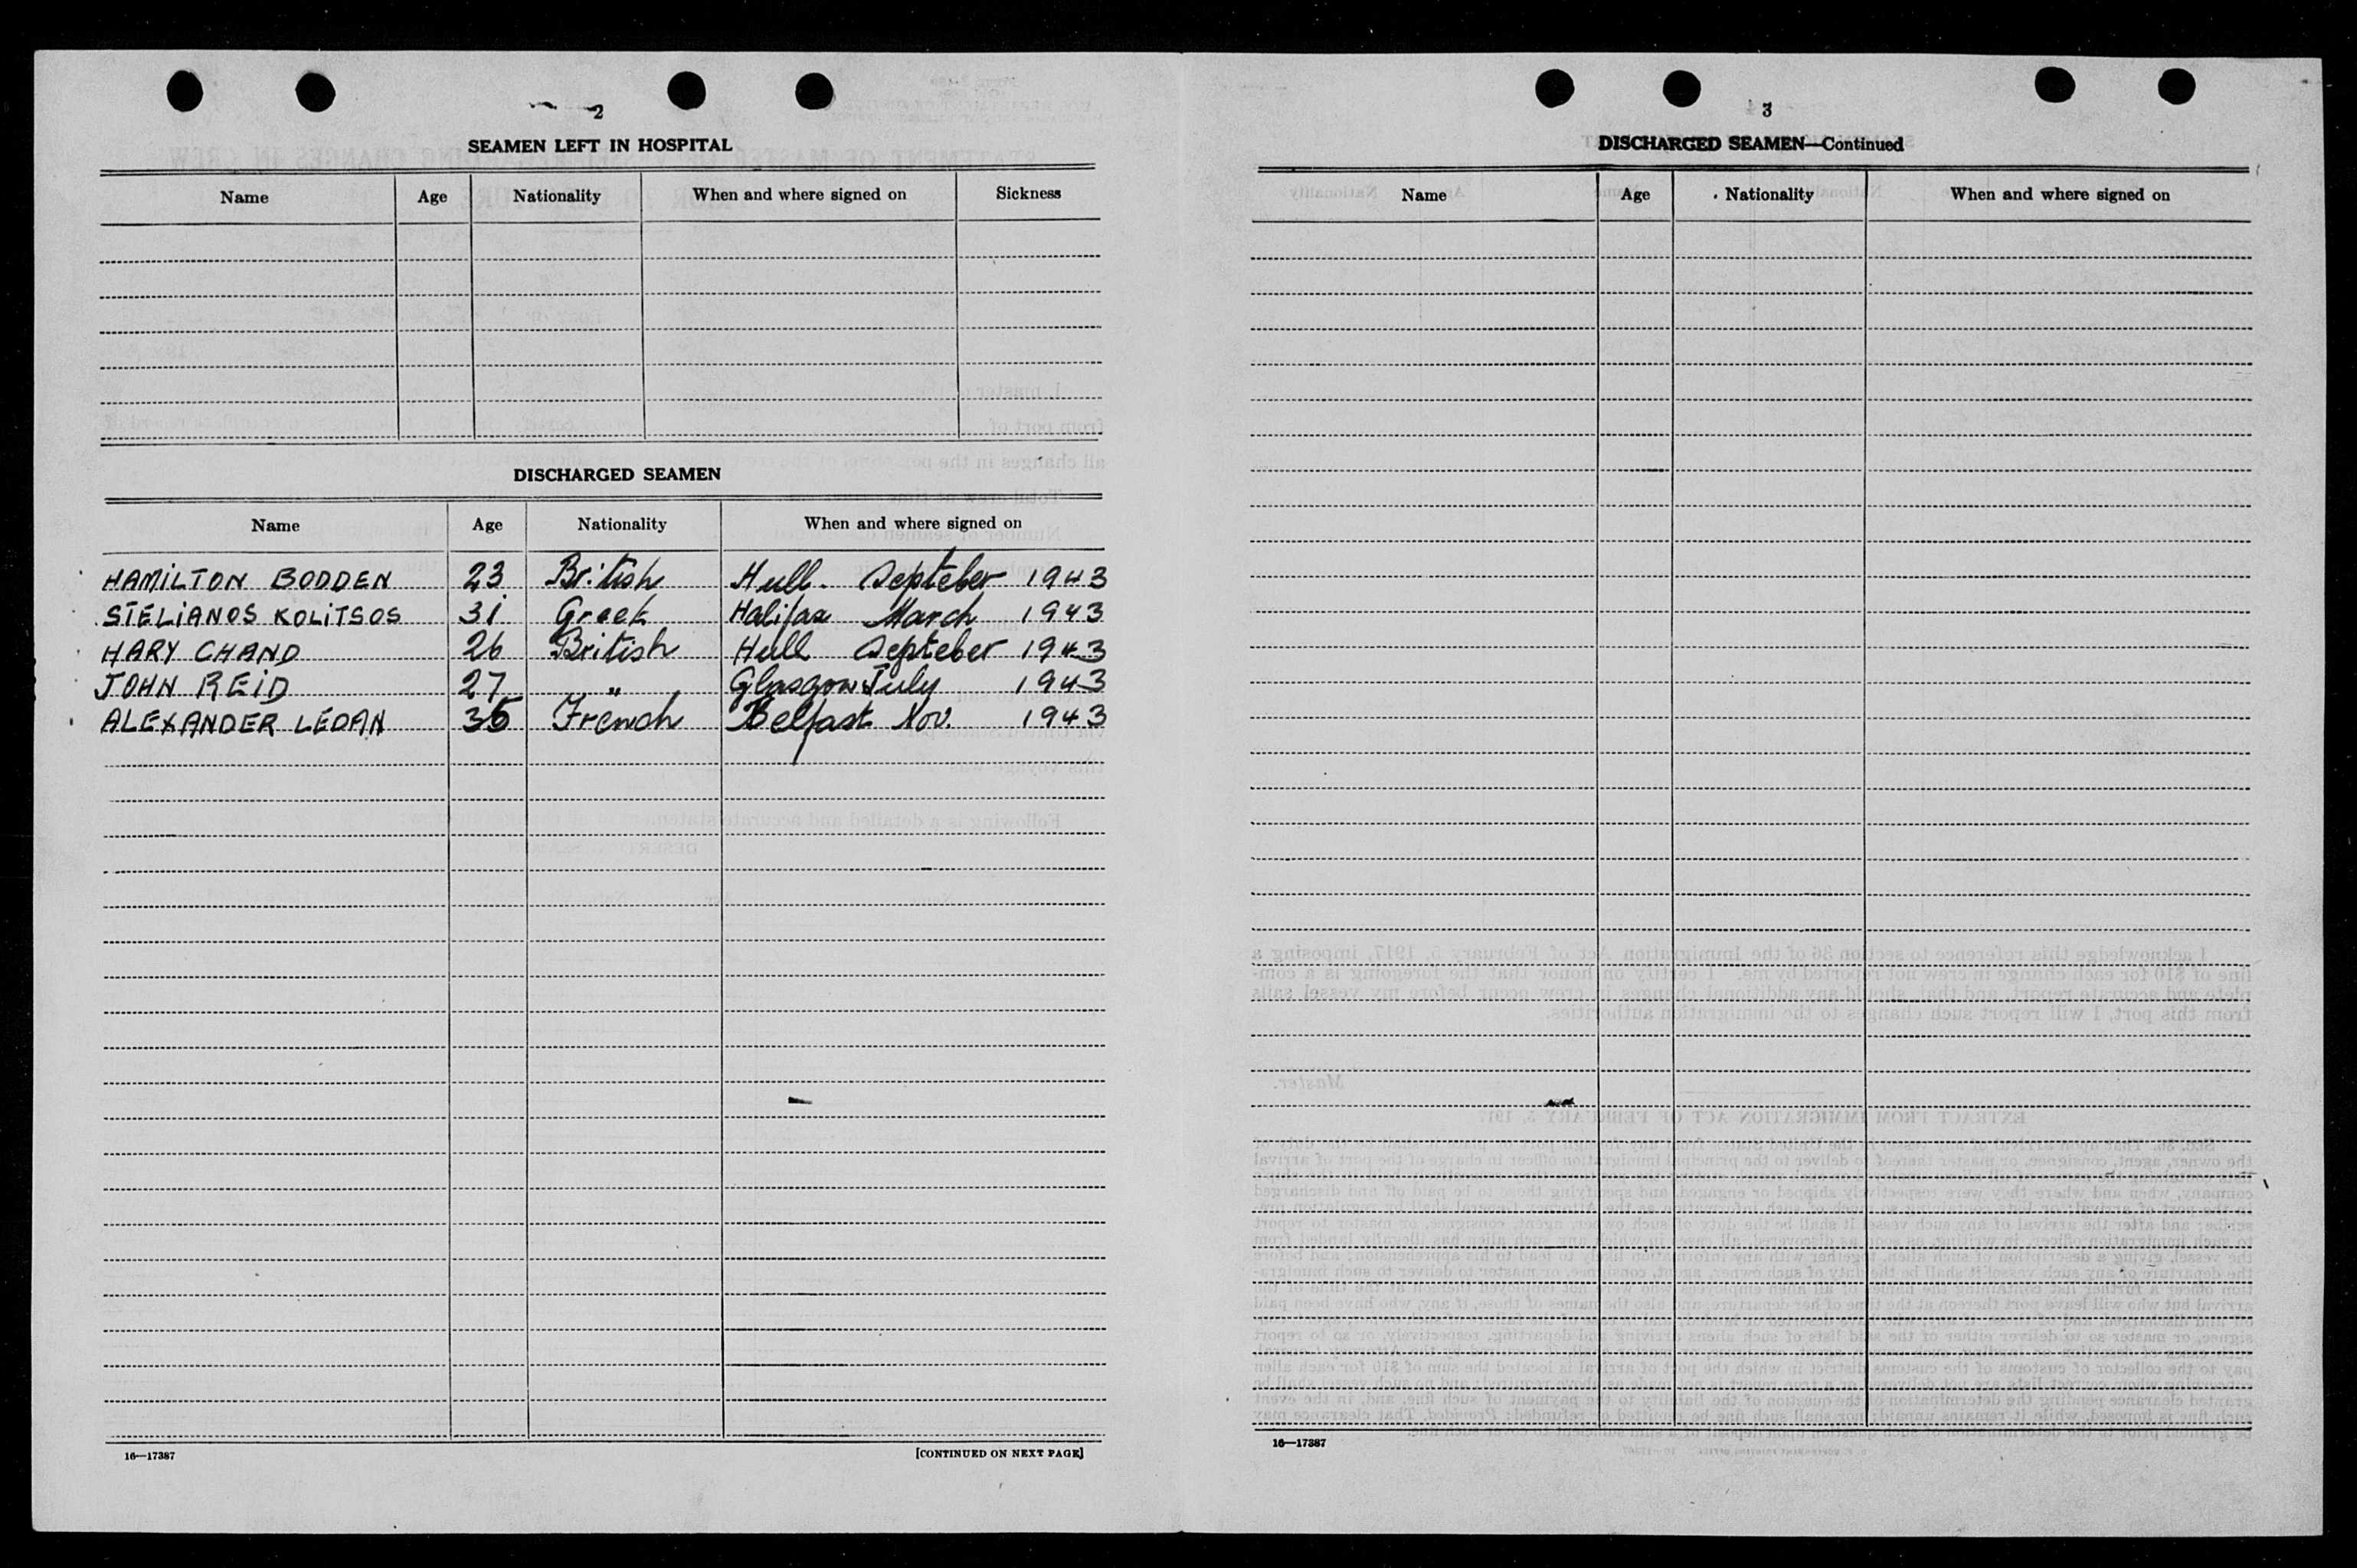 2
SEAMEN LEFT IN HOSPITAL
Name Age Nationality When and where signed on Sickness
DISCHARGED SEAMEN
Name Age Nationality When and where signed on
HAMILTON BODDEN 23 British Hull. Septeber 1943
STELIANOS KOLITSOS 31 Greek Halifax March 1943
HARY CHAND 26 British Hull Septeber 1943
JOHN REID 27 " Glasgow July 1943
ALEXANDER LEDAN 35 French Belfast Nov. 1943
16—17387 [CONTINUED ON NEXT PAGE]
3
DISCHARGED SEAMEN—Continued
Name Age Nationality When and where signed on
16—17387